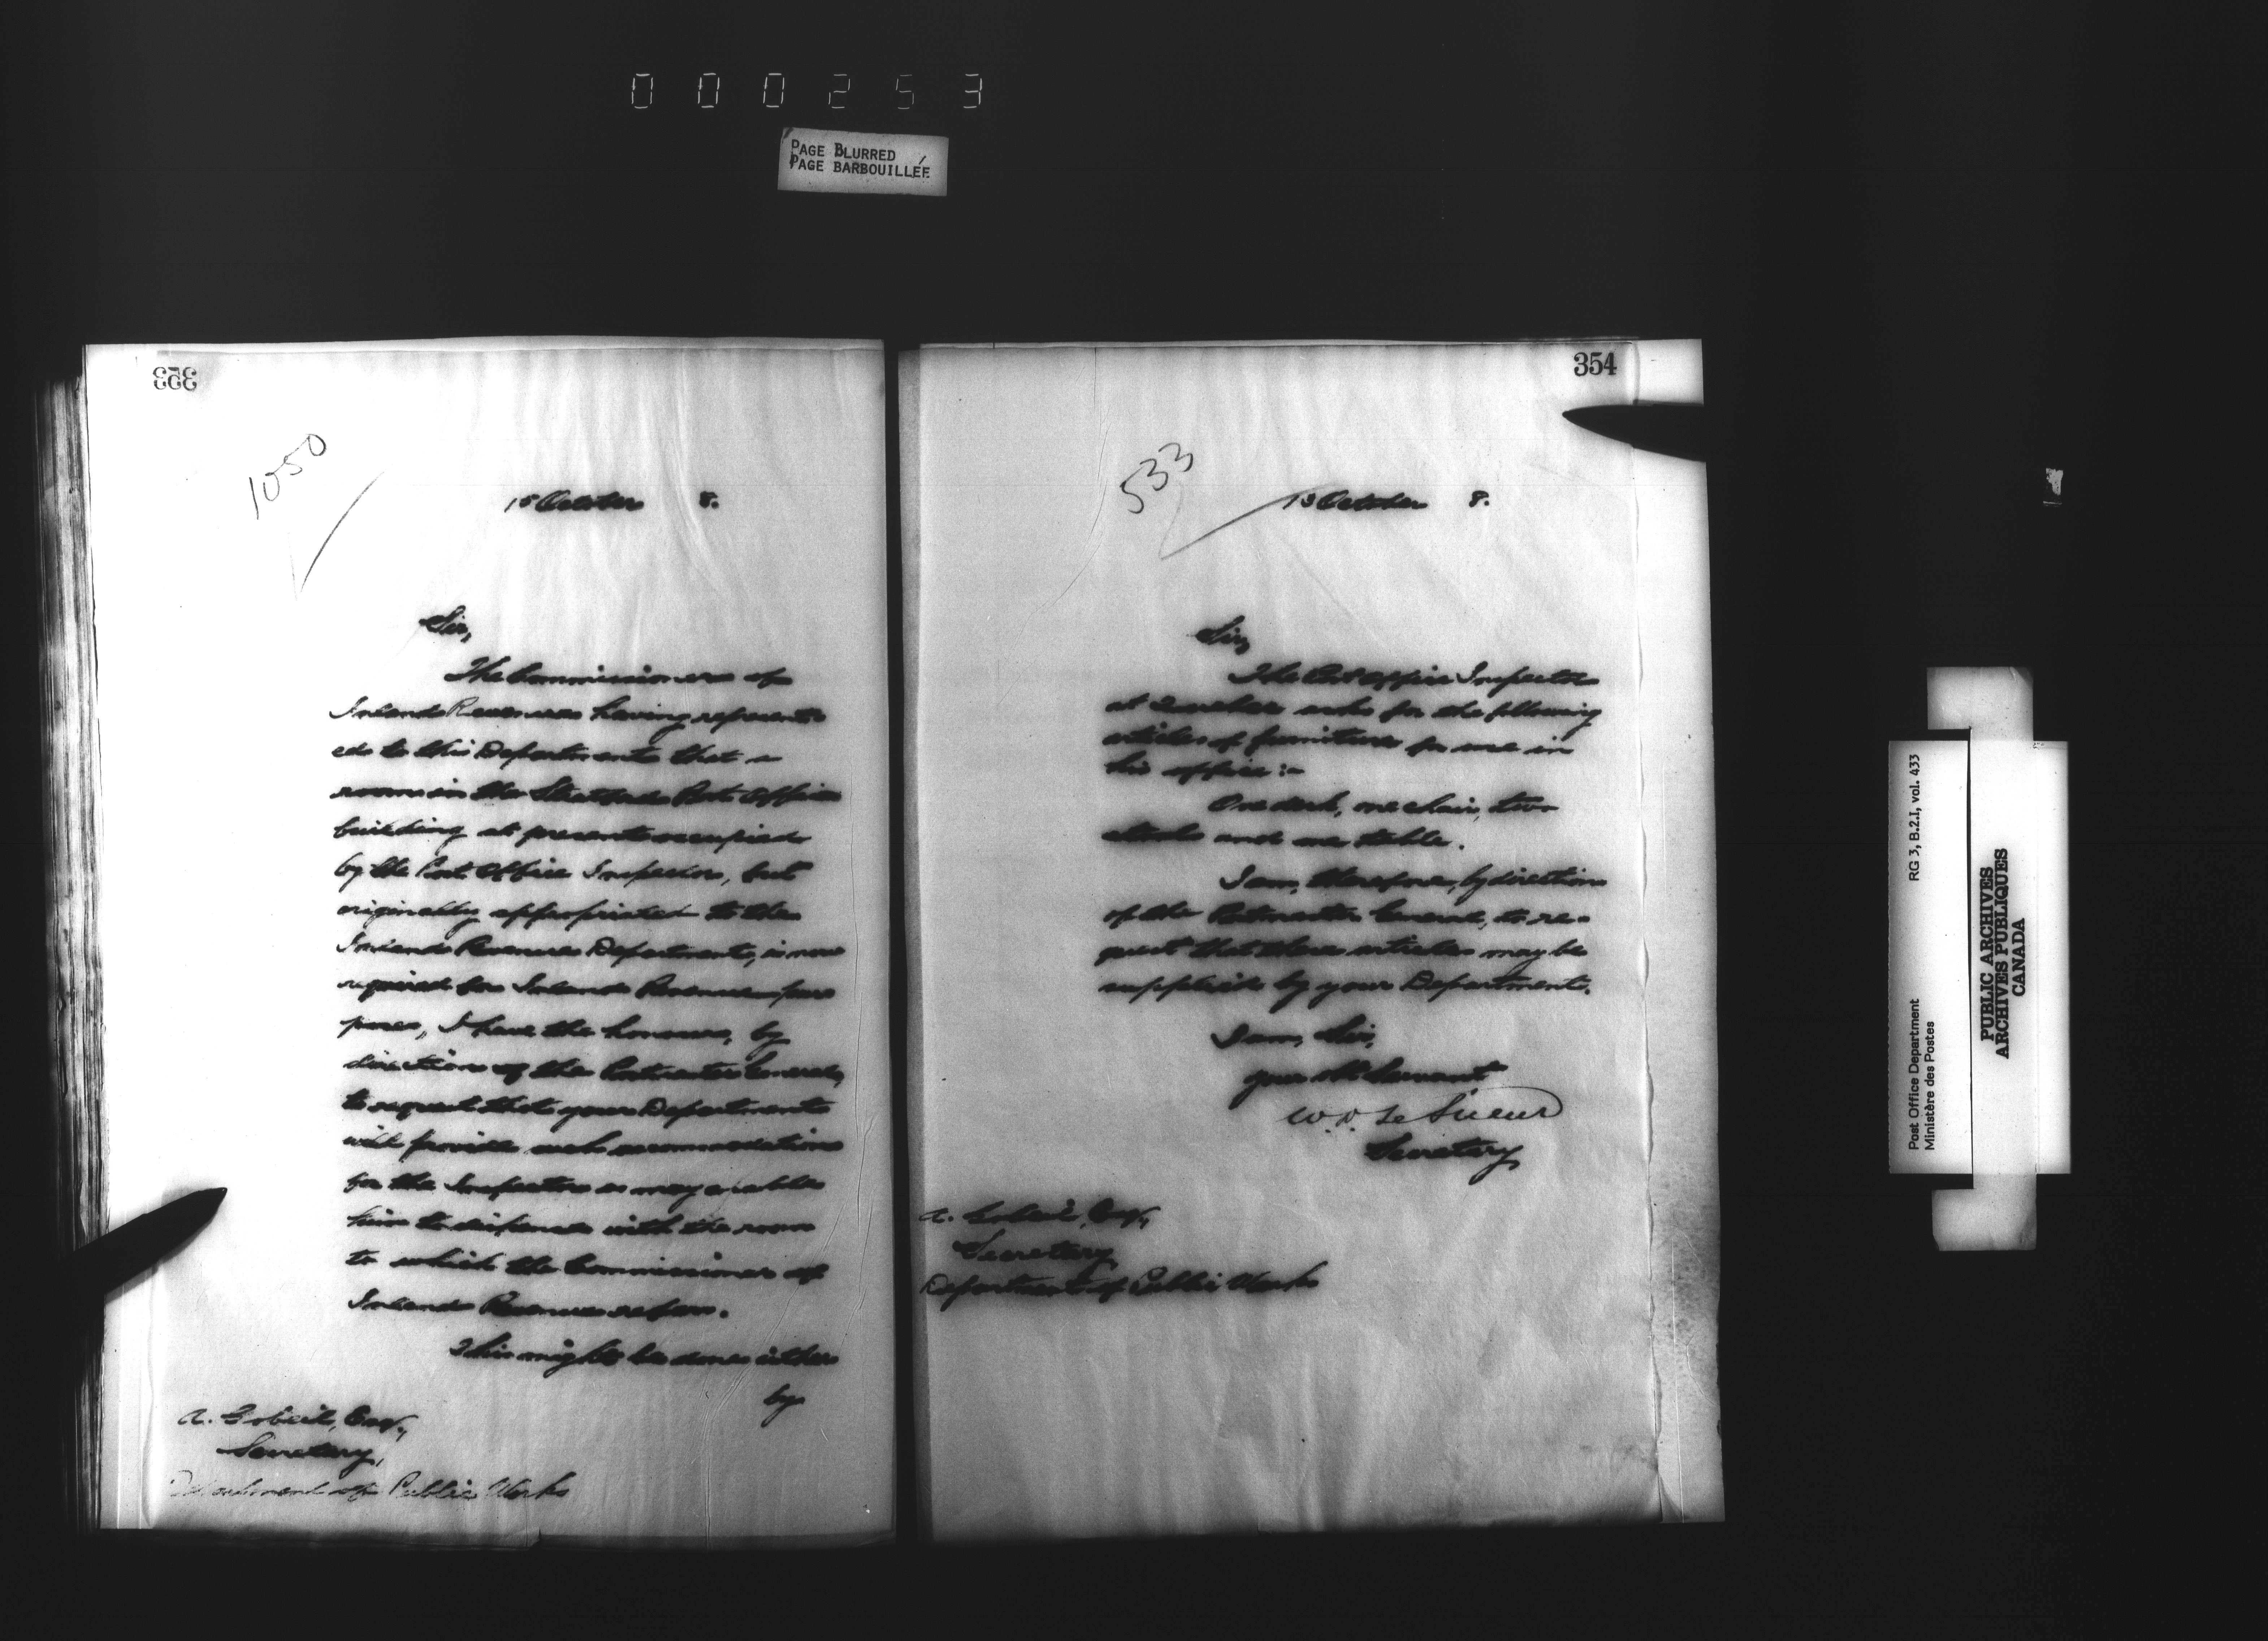 000253
PAGE BLURRED
PAGE BARBOUILLÉE
353
1050
15 October 8.
Sir,
The Commissioner of
Inland Revenue having represent-
ed to this Department that a
room in the Stratford Post Office
building at present occupied
by the Post Office Inspector, but
originally appropriated to the
Inland Revenue Department, is now
required for Inland Revenue pur
poses, I have the honour, by
direction of the Postmaster General,
to request that your Department
will provide such accommodation
for the Inspector as may enable
him to dispense with the room
to which the Commissioner of
Inland Revenue refers.
This might be done either
by
A. Gobeil, Esq.,
Secretary,
Department of Public Works
354
533
13 October 8.
Sir,
The Post Office Inspector
at Quebec asks for the following
articles of furniture for use in
his office :-
One desk, one chair, two
stools and one table.
I am, therefore, by direction
of the Postmaster General, to re-
quest that these articles may be
supplied by your Department.
I am, Sir,
your Servant
W. D. Le Sueur
Secretary
A. Gobeil, Esq.,
Secretary
Department of Public Works
RG 3, B.2.I, vol. 433
Post Office Department
Ministère des Postes
PUBLIC ARCHIVES
ARCHIVES PUBLIQUES
CANADA